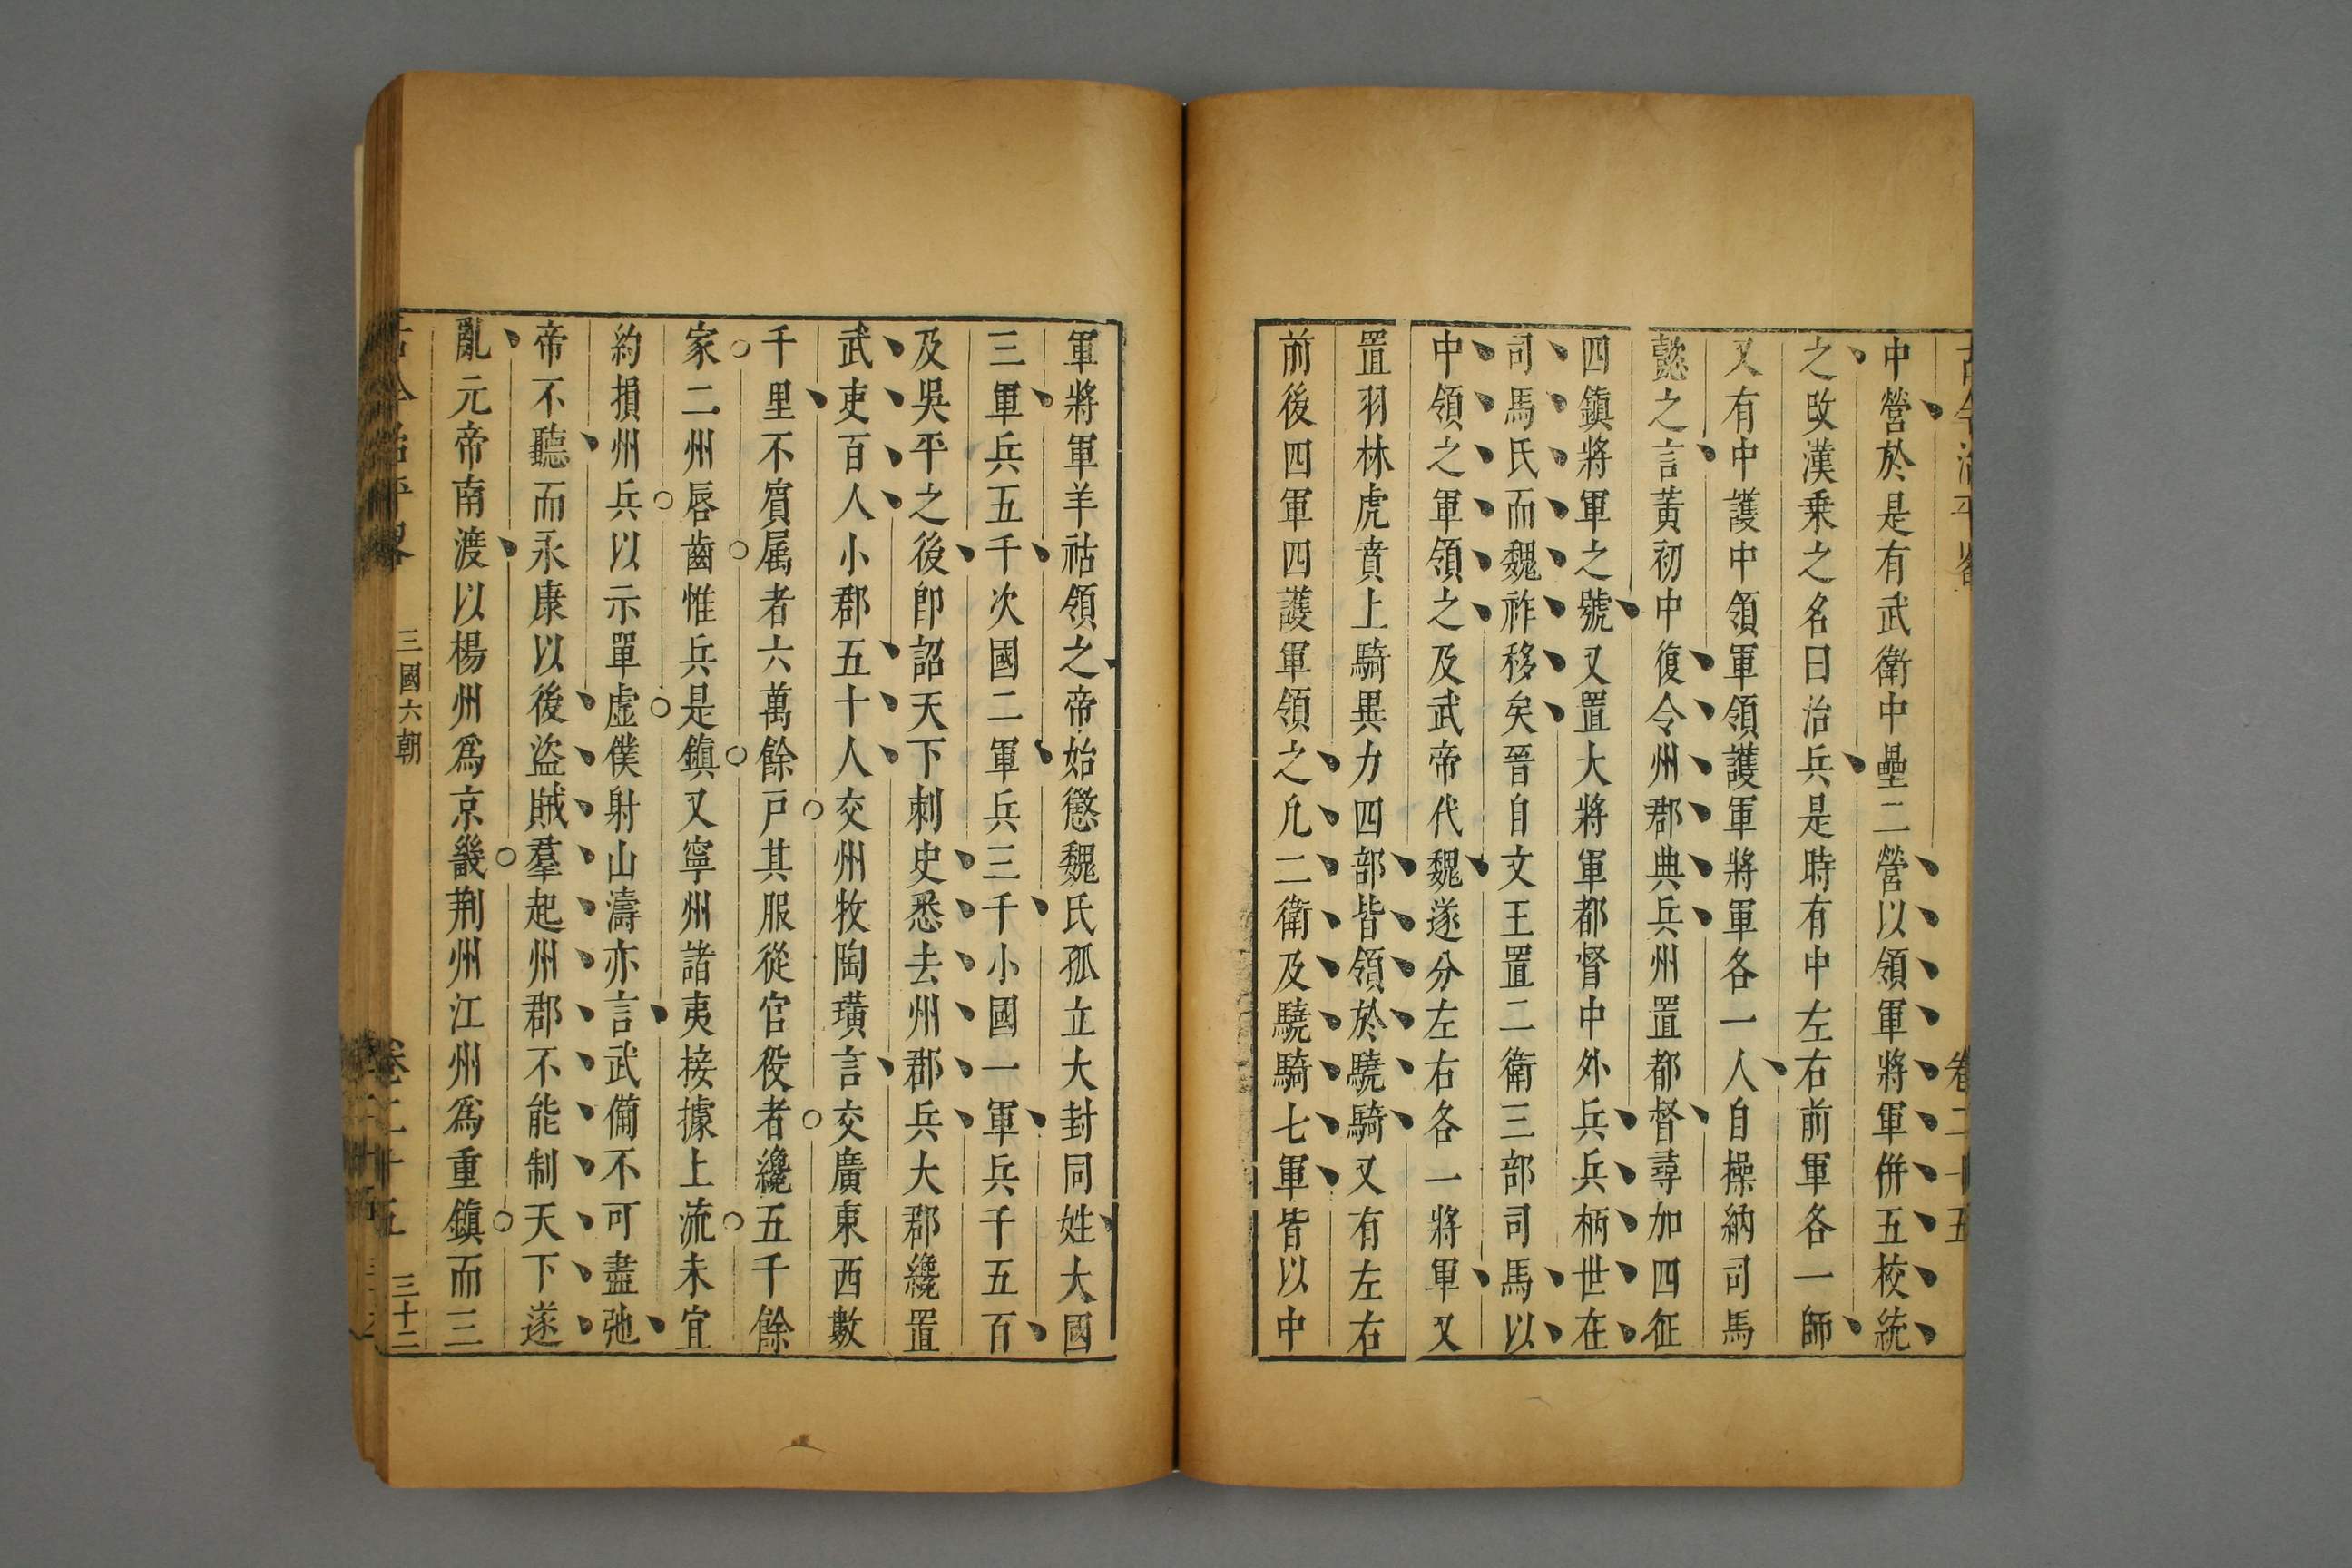 中營於是有武衛中壘二營以領軍將軍併五校統
之改漢乗之名曰治兵是時有中左右前軍各一師
又有中護中領軍領護軍將軍各一人自操納司馬
懿之言黃初中復令州郡典兵州置都督尋加四征
四鎮將軍之號又置大將軍都督中外兵兵柄世在
司馬氏而魏祚移矣晉自文王置二衛三部司馬以
中領之軍領之及武帝代魏遂分左右各一將軍又
置羽林虎賁上騎異力四部皆領於驍騎又有左右
前後四軍四護軍領之凢二衛及驍騎七軍皆以中
軍將軍羊祜領之帝始懲魏氏孤立大封同姓大國
三軍兵五千次國二軍兵三千小國一軍兵千五百
及吳平之後卽詔天下刺史悉去州郡兵大郡纔置
武吏百人小郡五十人交州牧陶璜言交廣東西數
千里不賔属者六萬餘戸其服從官役者纔五千餘
家二州唇齒惟兵是鎮又寧州諸夷接據上流未宜
約損州兵以示單虛僕射山濤亦言武備不可盡弛
帝不聽而永康以後盜賊羣起州郡不能制天下遂
亂元帝南渡以楊州爲京畿荆州江州爲重鎮而三
三國六朝
卷二十五
三十二